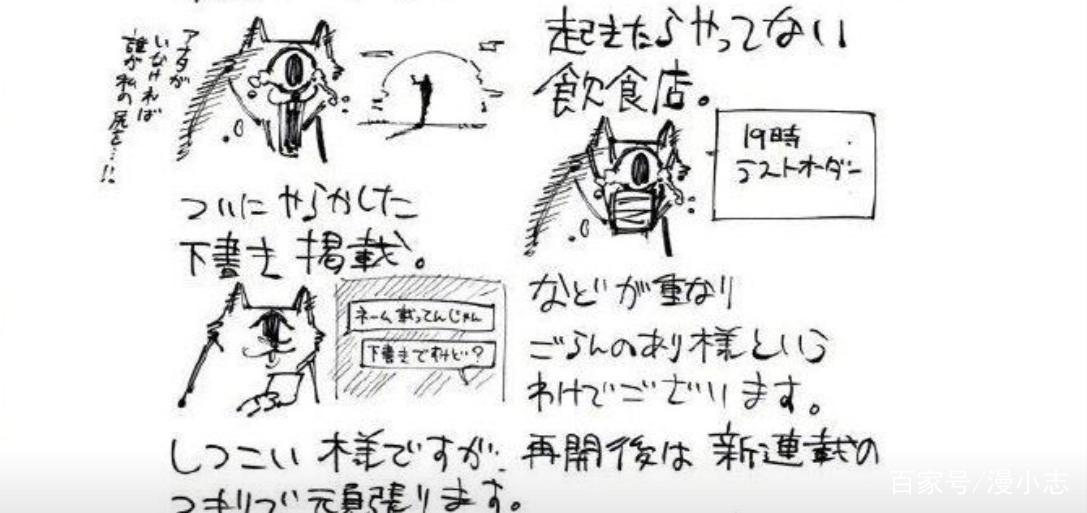 起きたらやってない
飲食店。
19時
ラストオーダー
などが重なり
ごらんのあり様という
わけでございます。
アナタが
いなければ
誰が私の尻を…!!
ついにやらかした
下書き掲載。
ネーム載ってんじゃん
下書きですけど?
しつこい様ですが、再開後は新連載の
つもりで頑張ります。
百家号/漫小志